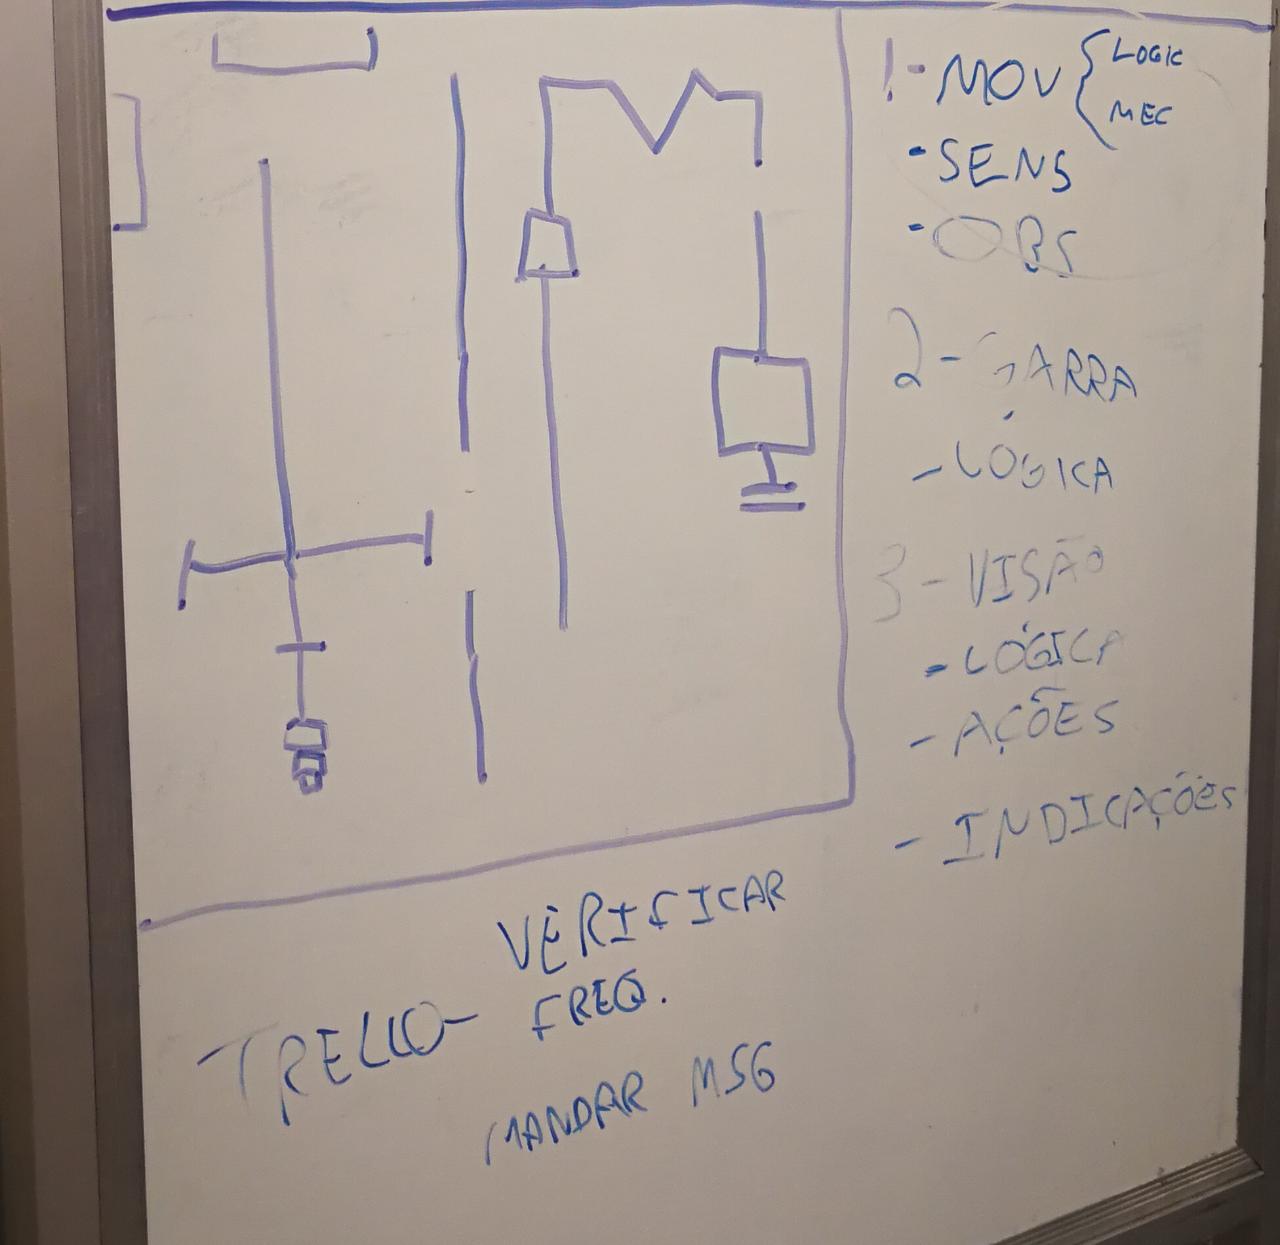 1- MOV { LOGIC
MEC
- SENS
- OBS
2- GARRA
- LÓGICA
3- VISÃO
- LÓGICA
- AÇÕES
- INDICAÇÕES
VERIFICAR
TRELLO- FREQ.
MANDAR MSG